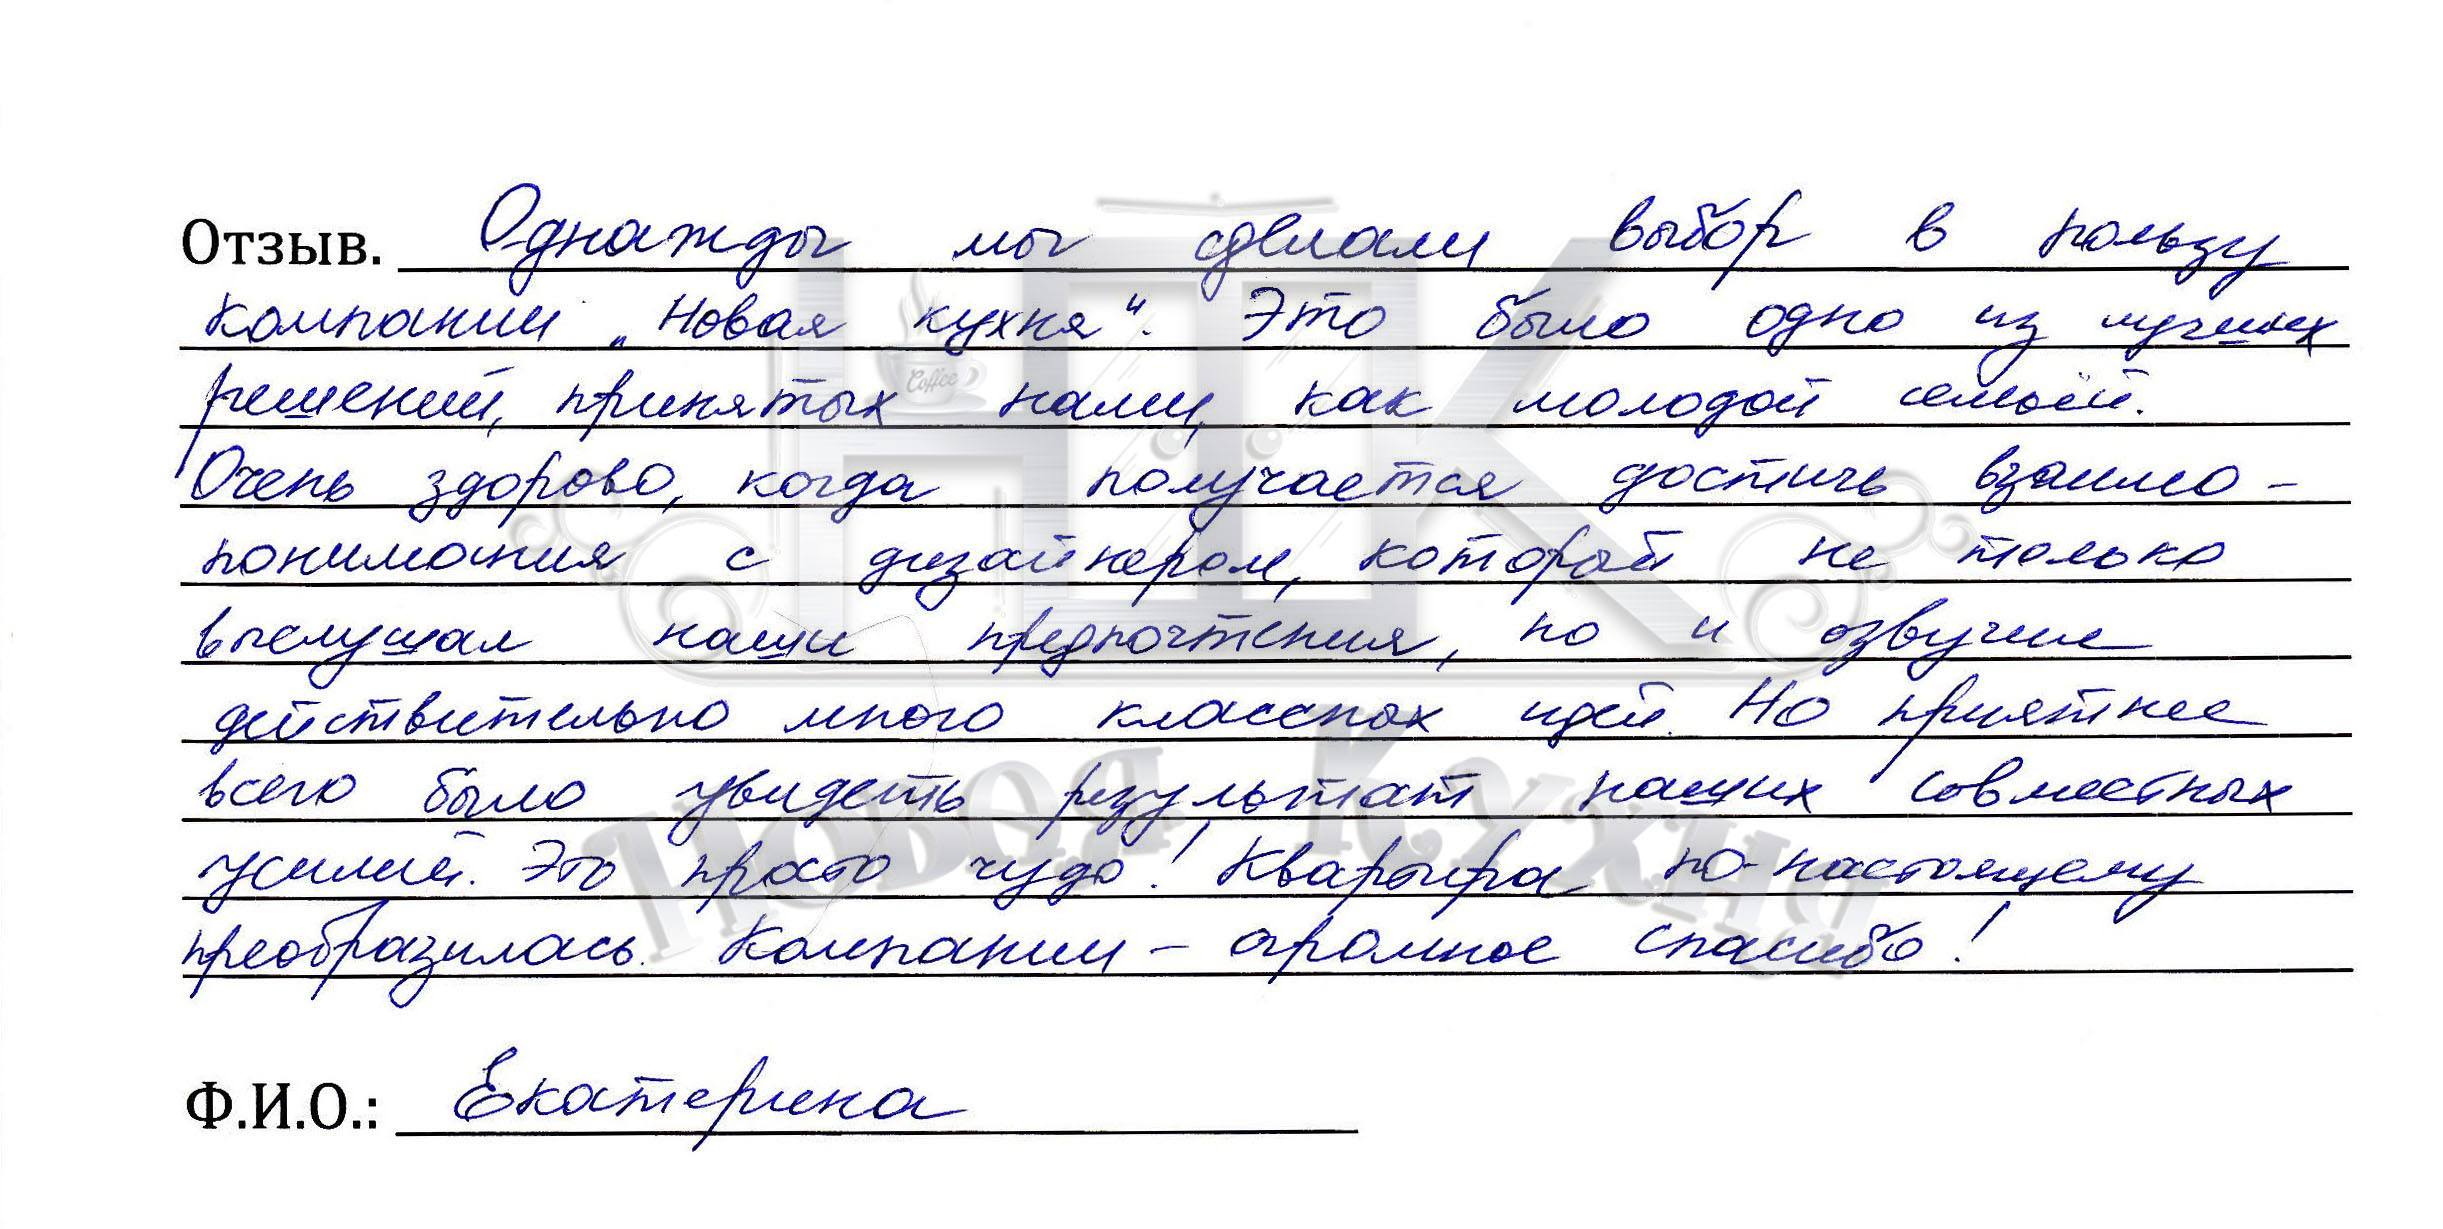 Отзыв. Однажды мы сделали выбор в пользу
компании „Новая кухня“. Это было одно из лучших
решений, принятых нами, как молодой семьёй.
Очень здорово, когда получается достичь взаимо-
понимания с дизайнером, который не только
выслушал наши предпочтения, но и озвучил
действительно много классных идей. Но приятнее
всего было увидеть результат наших совместных
усилий. Это просто чудо! Квартира по-настоящему
преобразилась. Компании – огромное спасибо!
Ф.И.О.: Екатерина
НК
Coffee
Новая Кухня